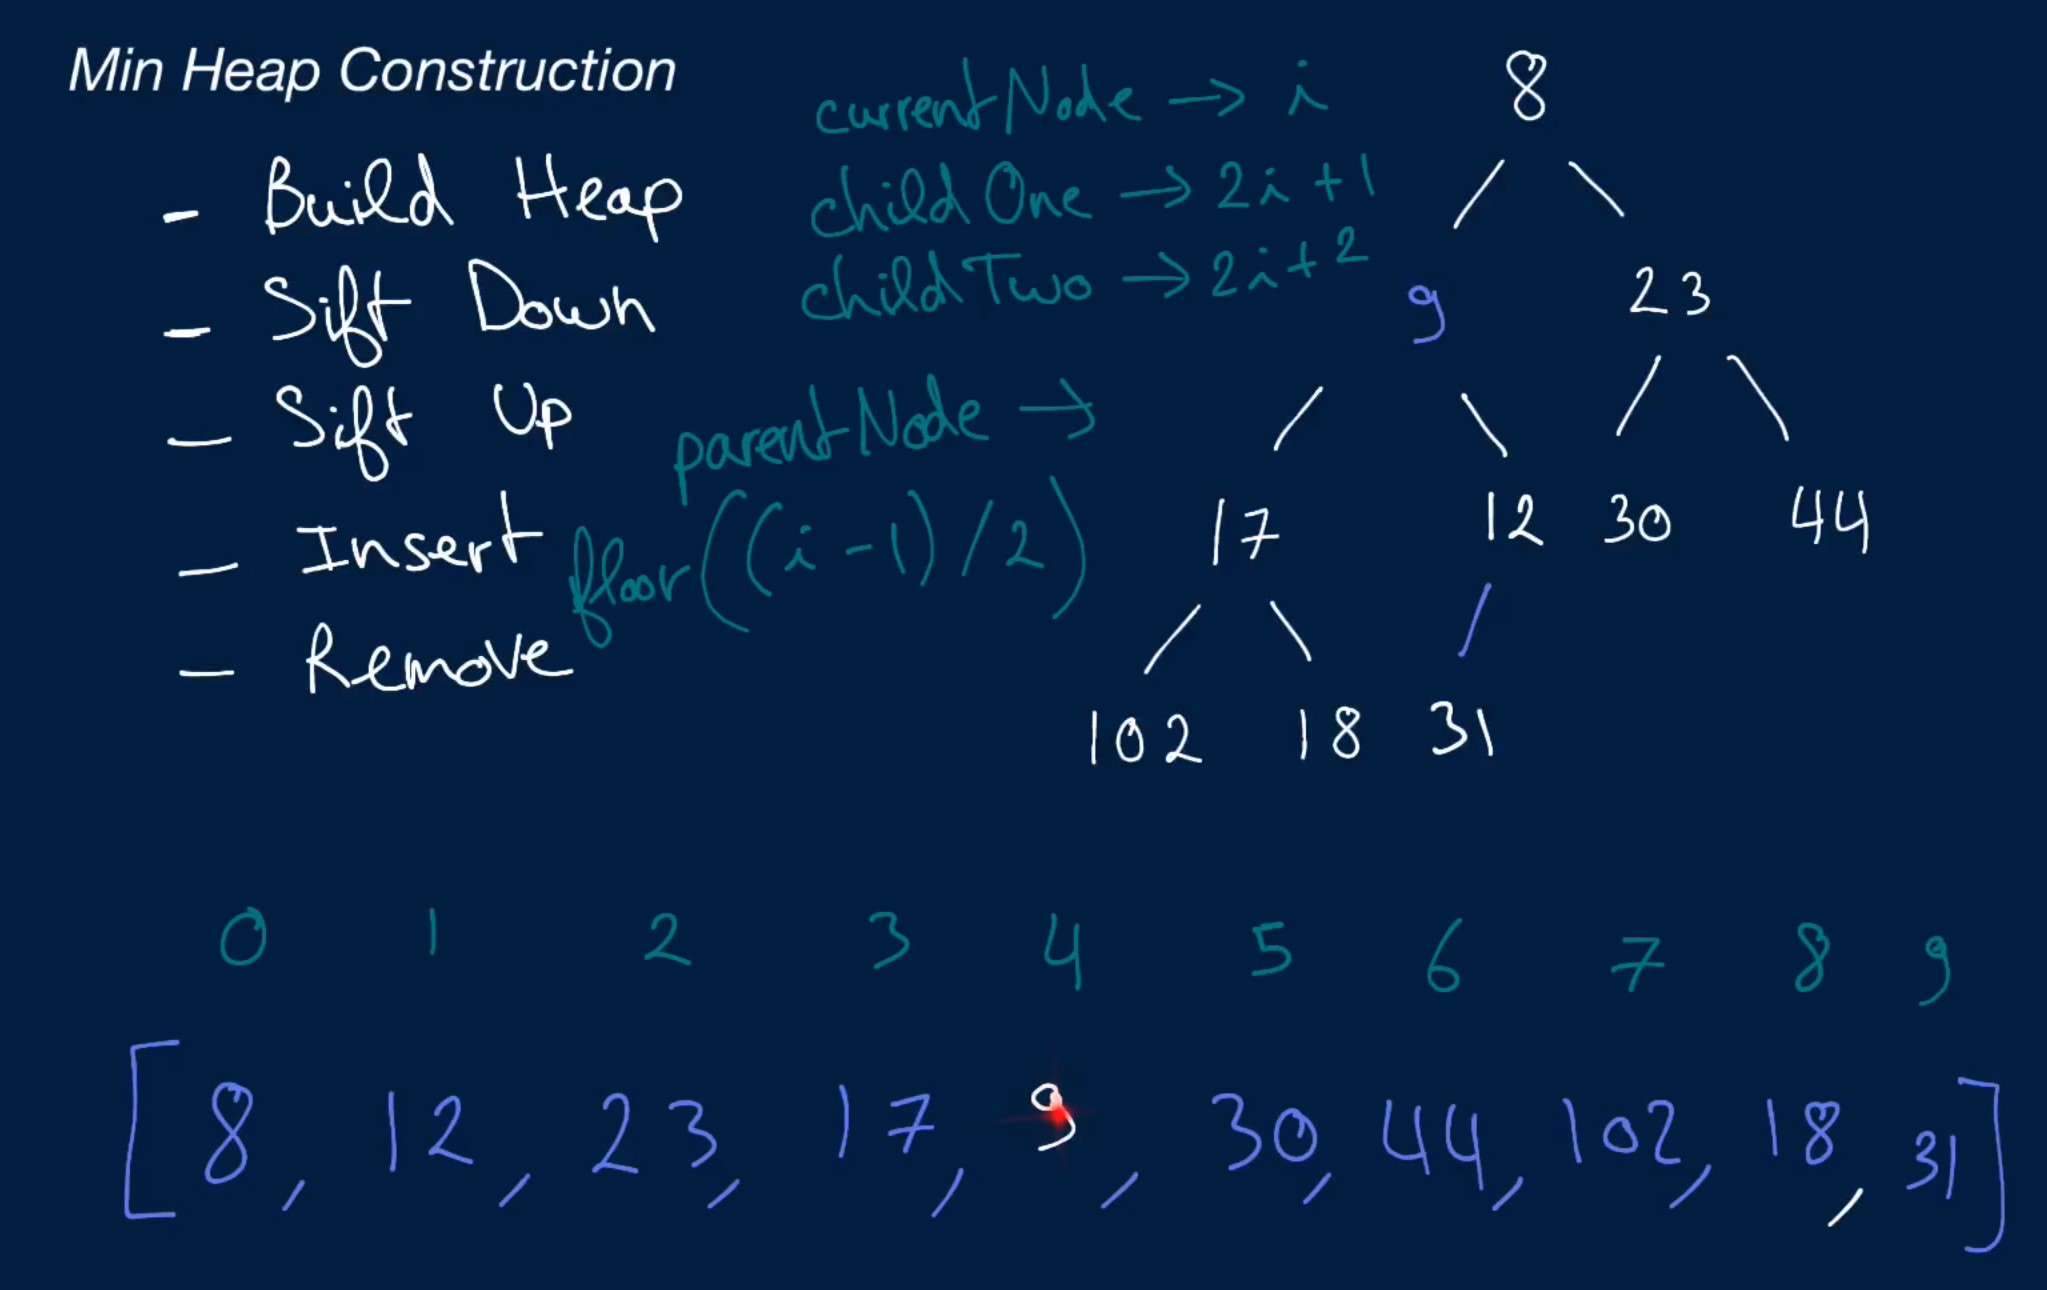 Min Heap Construction
- Build Heap
- Sift Down
- Sift Up
- Insert
- Remove
currentNode → i
childOne → 2i+1
childTwo → 2i+2
parentNode →
floor((i-1)/2)
8
9 23
17 12 30 44
102 18 31
0 1 2 3 4 5 6 7 8 9
[8, 12, 23, 17, 9, 30, 44, 102, 18, 31]